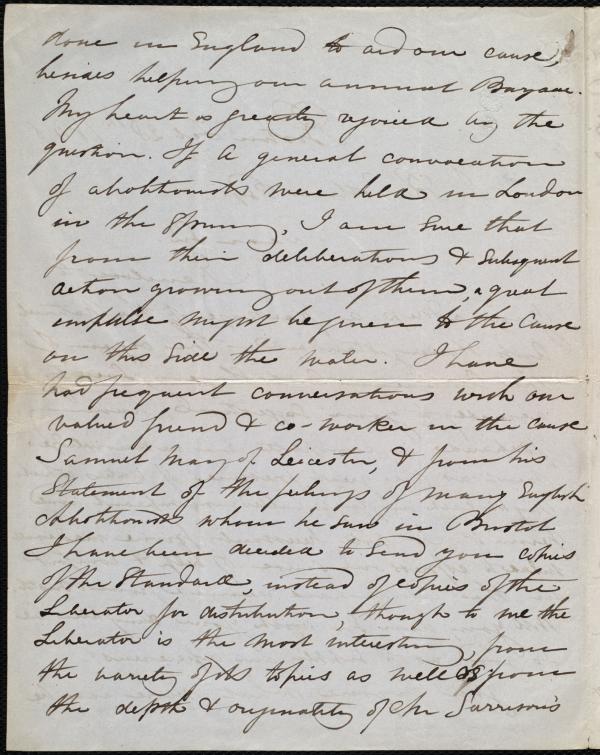 done in England to aid our cause,
besides helping our annual Bazaar.
My heart is greatly rejoiced by the
question. If a general convocation
of abolitionists were held in London
in the Spring, I am sure that
from their deliberations & subsequent
action growing out of them, a great
impulse might be given to the Cause
on this side the water. I have
had frequent conversations with our
valued friend & co-worker in the cause
Samuel May of Leicester, & from his
Statement of the feelings of many English
Abolitionists whom he saw in Bristol
I have been decided to send you copies
of the Standard, instead of copies of the
Liberator for distribution, though to me the
Liberator is the most interesting, from
the variety of its topics as well as from
the depth & originality of Mr Garrison's